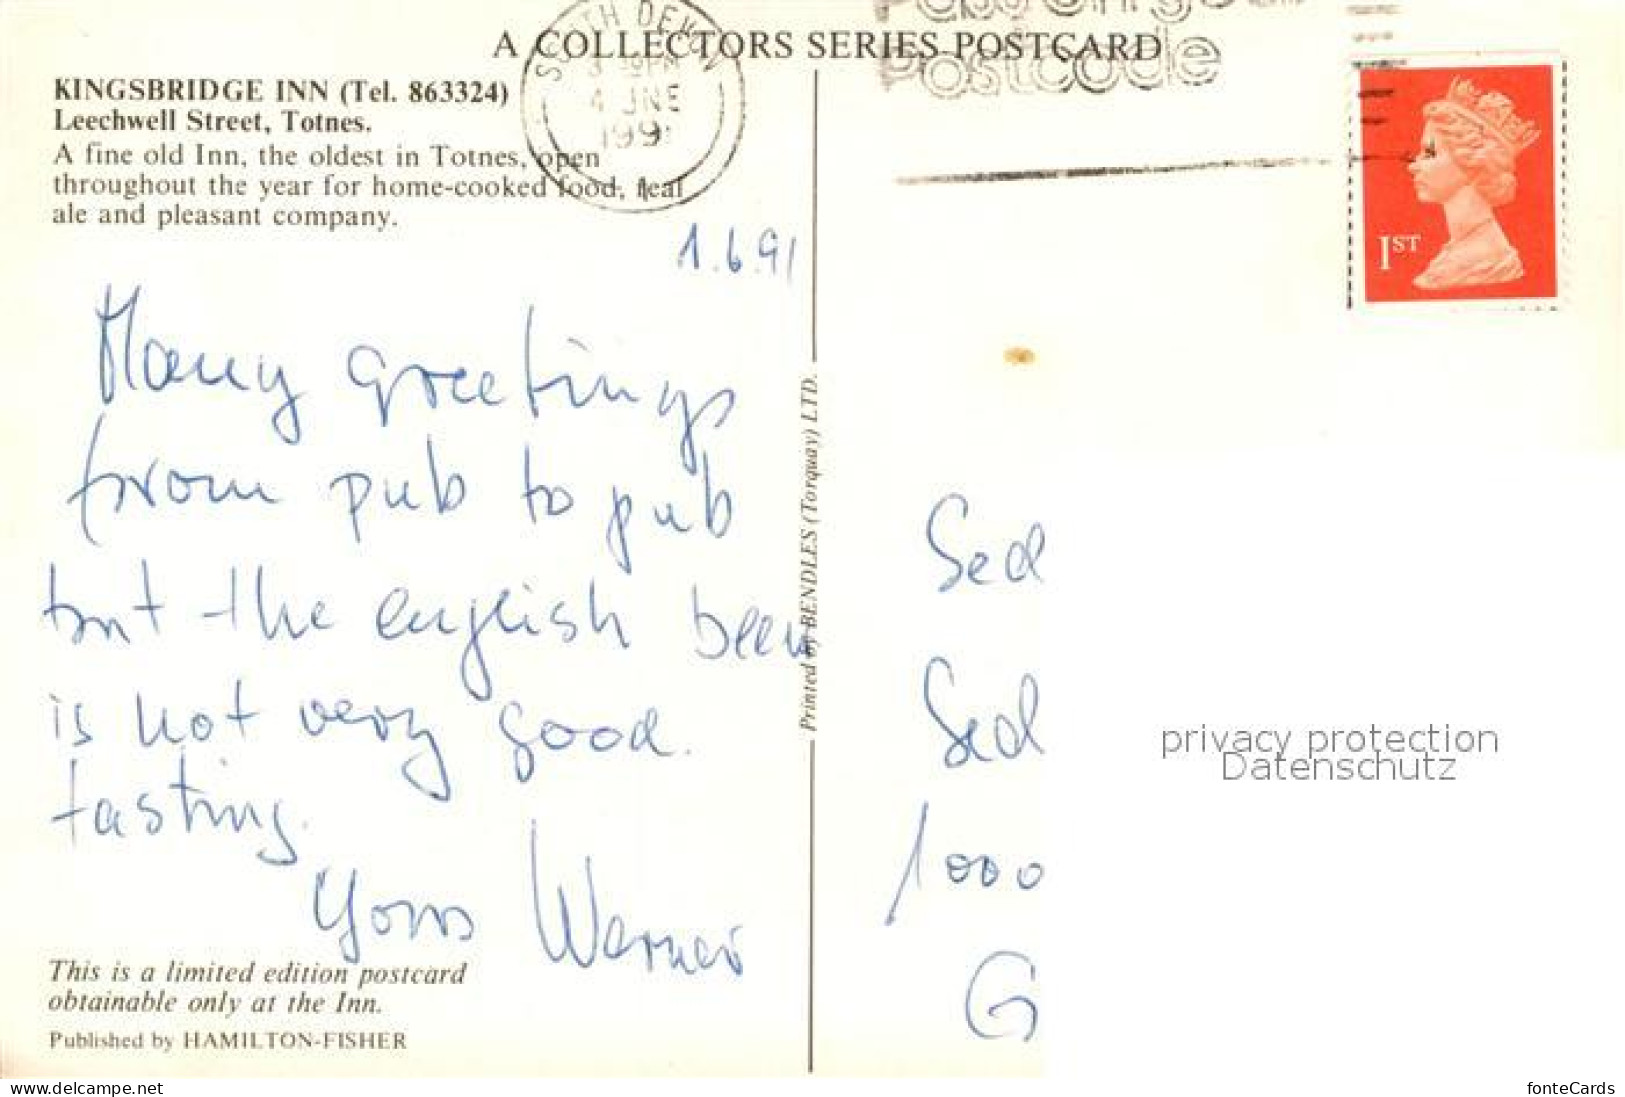 A COLLECTORS SERIES POSTCARD
SOUTH DEVON
4 JNE
199
Postcode
KINGSBRIDGE INN (Tel. 863324)
Leechwell Street, Totnes.
A fine old Inn, the oldest in Totnes, open
throughout the year for home-cooked food, Real
ale and pleasant company.
1ST
1.6.91
Many greetings
from pub to pub
but the english beer
is not very good
tasting.
Yours Werner
This is a limited edition postcard
obtainable only at the Inn.
Published by HAMILTON-FISHER
Printed by BENDLES (Torquay) LTD.
Sed
Sed
1000
G
privacy protection
Datenschutz
© www.oldthing.de
fonteCards